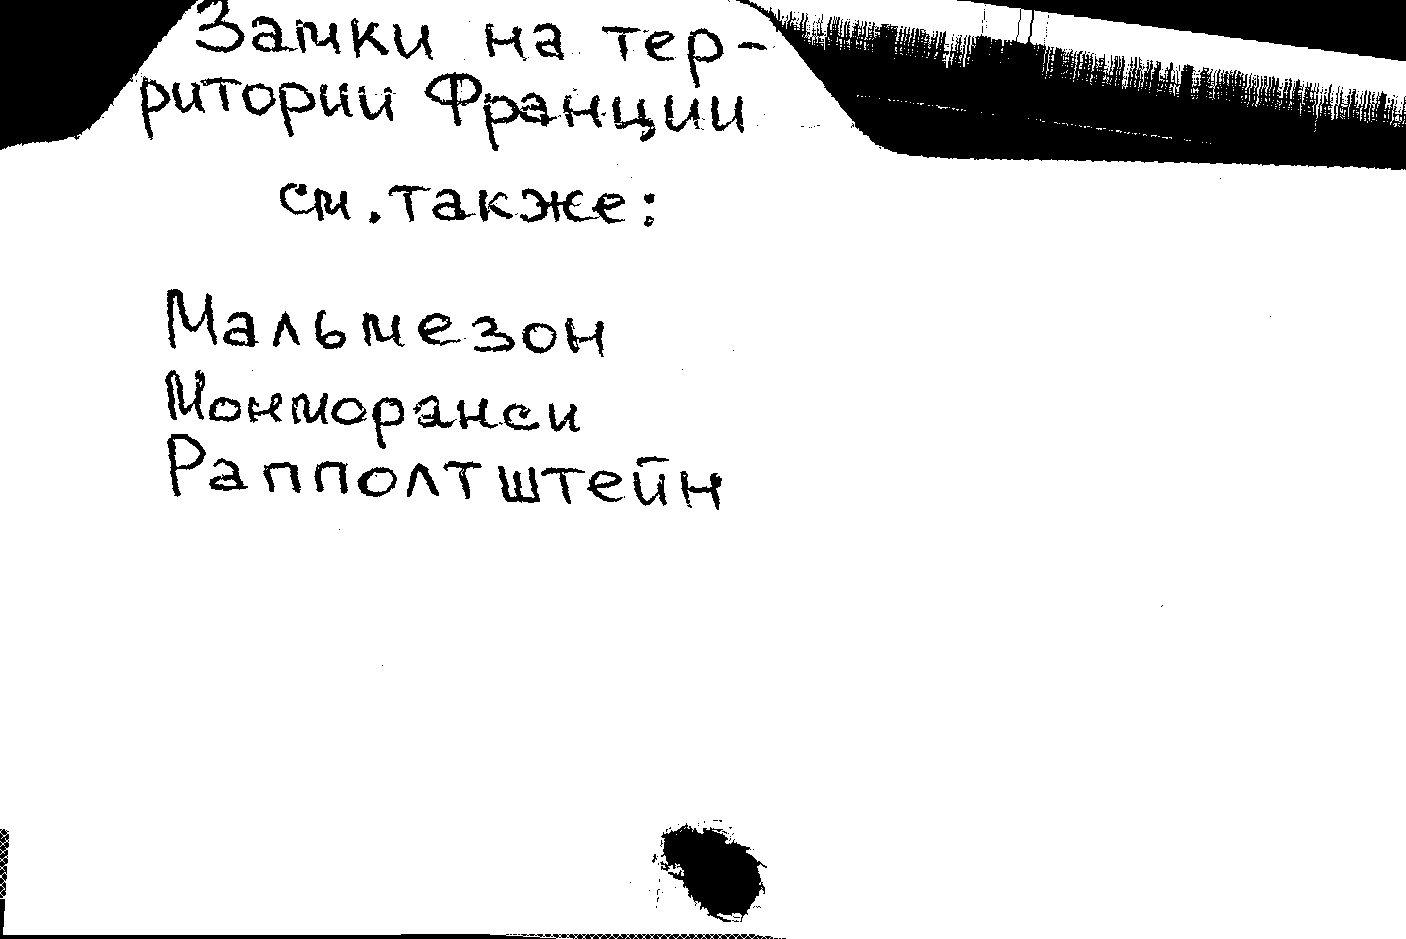 Замки на тер-
ритории Франции
см. также:
Мальмезон
Монморанси
Рапполтштейн